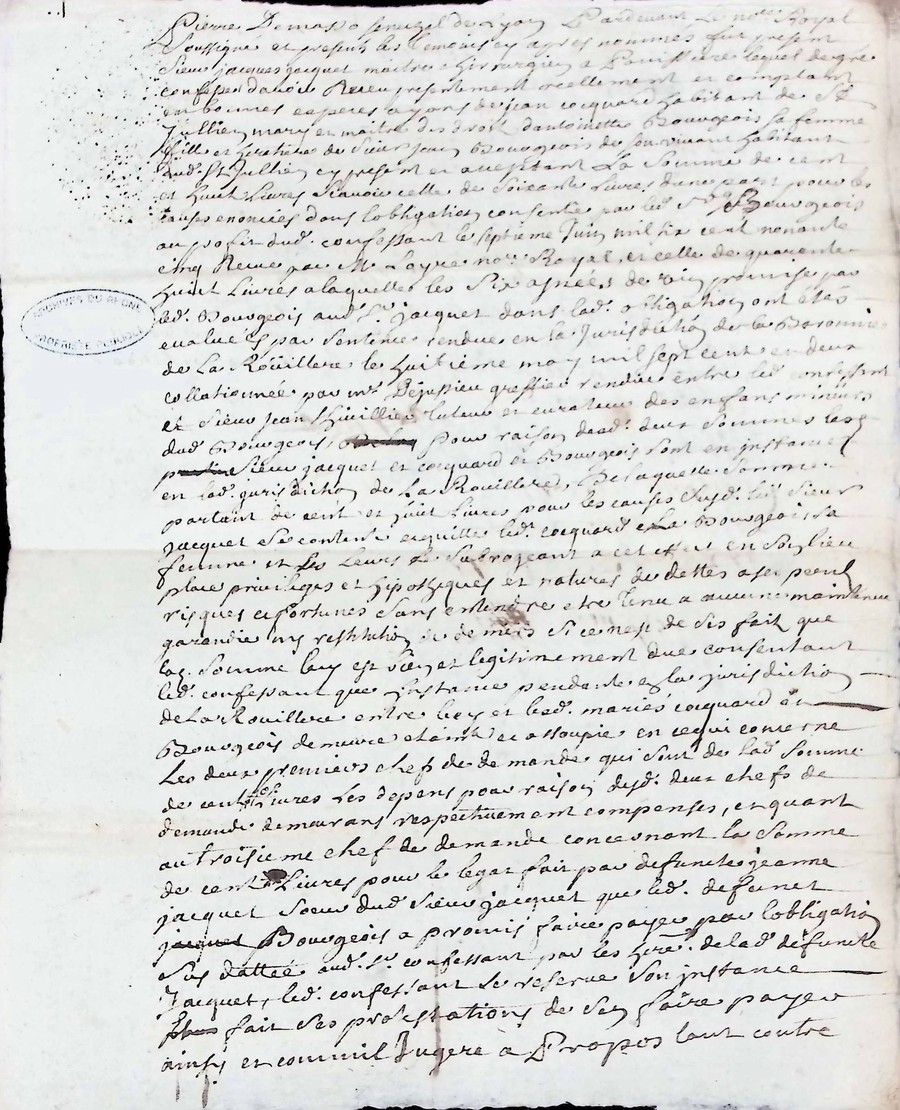 Pierre Demasso senechal de Lyon Pardevant Le no.re Royal
soussigné et presents les temoins cy apres nommes fut present
Sieur jacques jacquet maitre chirurgien a lequel de gré
confesse d'avoir Receu presentement reellement et comptant
en bonnes especes ayans de jean cocquard habitant de St
Jullien mary et maitre des droits d'antoinette Bourgeois sa femme
fille et heritiere de Sieur jean Bourgeois de son vivant habitant
aud. St Jullien cy present et acceptant La Somme de cent
et huit Livres Scavoir celle de Soixante Livres d'une part pour les
causes enoncées dans l'obligation consentie par led. Sr Bourgeois
au profit dud. confessant le septieme Juin mil six cent nonante
cinq Receue par Me Loyre nore Royal, et celle de quarante
huit Livres a laquelle les Six asnées de vin promise par
led. Bourgeois aud. Sr jacquet dans lad. obligation ont étés
evaluées par Sentence rendue en la Jurisdiction de la Baronnie
de La Roüillere le huitieme may mil sept cent en deux
collationnée par Mr Dejussieu greffier rendue entre led. confessant
et Sieur Jean thuillier tuteur et curateur des enfans mineurs
dud. Bourgeois, pour raison desd. deux Sommes lesq
Sieur jacquet et cocquard et Bourgeois sont en instance
en lad. jurisdiction de La Rouillere, De laquelle Somme
partant de cent et huit Livres pour les causes Susd. led. Sieur
jacquet se contente et quitte led. cocquard et la Bourgeois sa
femme et les Leurs Le Subrogeant a cet effet en Son lieu
place privileges et hipotheques et natures de dettes a ses peril
risques et fortunes Sans entendre etre tenu a aucune maintenue
garandie ny restitution de deniers Si ce n'est de Ses fait que
lad. Somme luy est bien et legitimement due consentant
led. confessant que l'instance pendante en la jurisdiction
de La Rouillere entre luy et lesd. mariés cocquard et
Bourgeois demeure etainte et assoupie en ce qui concerne
Les deux premiers chefs de demande qui sont de lad. Somme
de cent huit Livres Les depens pour raison desd. deux chefs de
demande demeurans respectivement compenses, et quant
au troisieme chef de demande concernant la Somme
de cent Livres pour le legat fait par defuncte jeanne
jacquet Soeur dud. Sieur jacquet que led. defunct
jacquet Bourgeois a promis faire payer par l'obligation
Sus dattée aud. Sr confessant par les hers de lad. defuncte
Jacquet, led. confessant Se reserve Son instance
fait Ses protestations de S'en faire payer
ainsy et comm'il Jugera a Propos tant contre
ARCHIVES DU RHONE
PROPRIETE PUBLIQUE